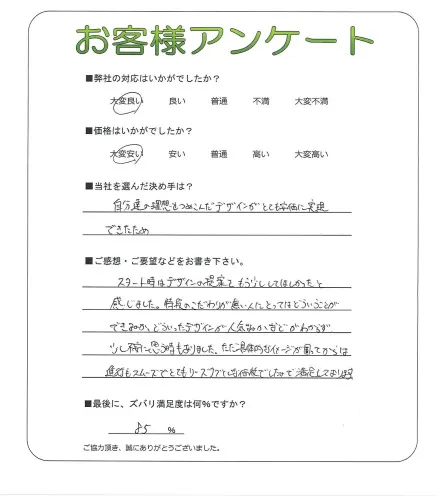 お客様アンケート
■弊社の対応はいかがでしたか？
大変良い 良い 普通 不満 大変不満
■価格はいかがでしたか？
大変安い 安い 普通 高い 大変高い
■当社を選んだ決め手は？
自分達の理想をつめこんだデザインがとても安価に実現
できたため
■ご感想・ご要望などをお書き下さい。
スタート時はデザインの提案をもう少ししてほしかったと
感じました。特段のこだわりが無い人にとってはどういうことが
できるのか、どういったデザインが人気なのかなどがわからず
少し不安に思う時もありました。ただ具体的なイメージが固ってからは
進行もスムーズでとてもリーズナブルな価格でしたので満足しております
■最後に、ズバリ満足度は何%ですか？
85 %
ご協力頂き、誠にありがとうございました。